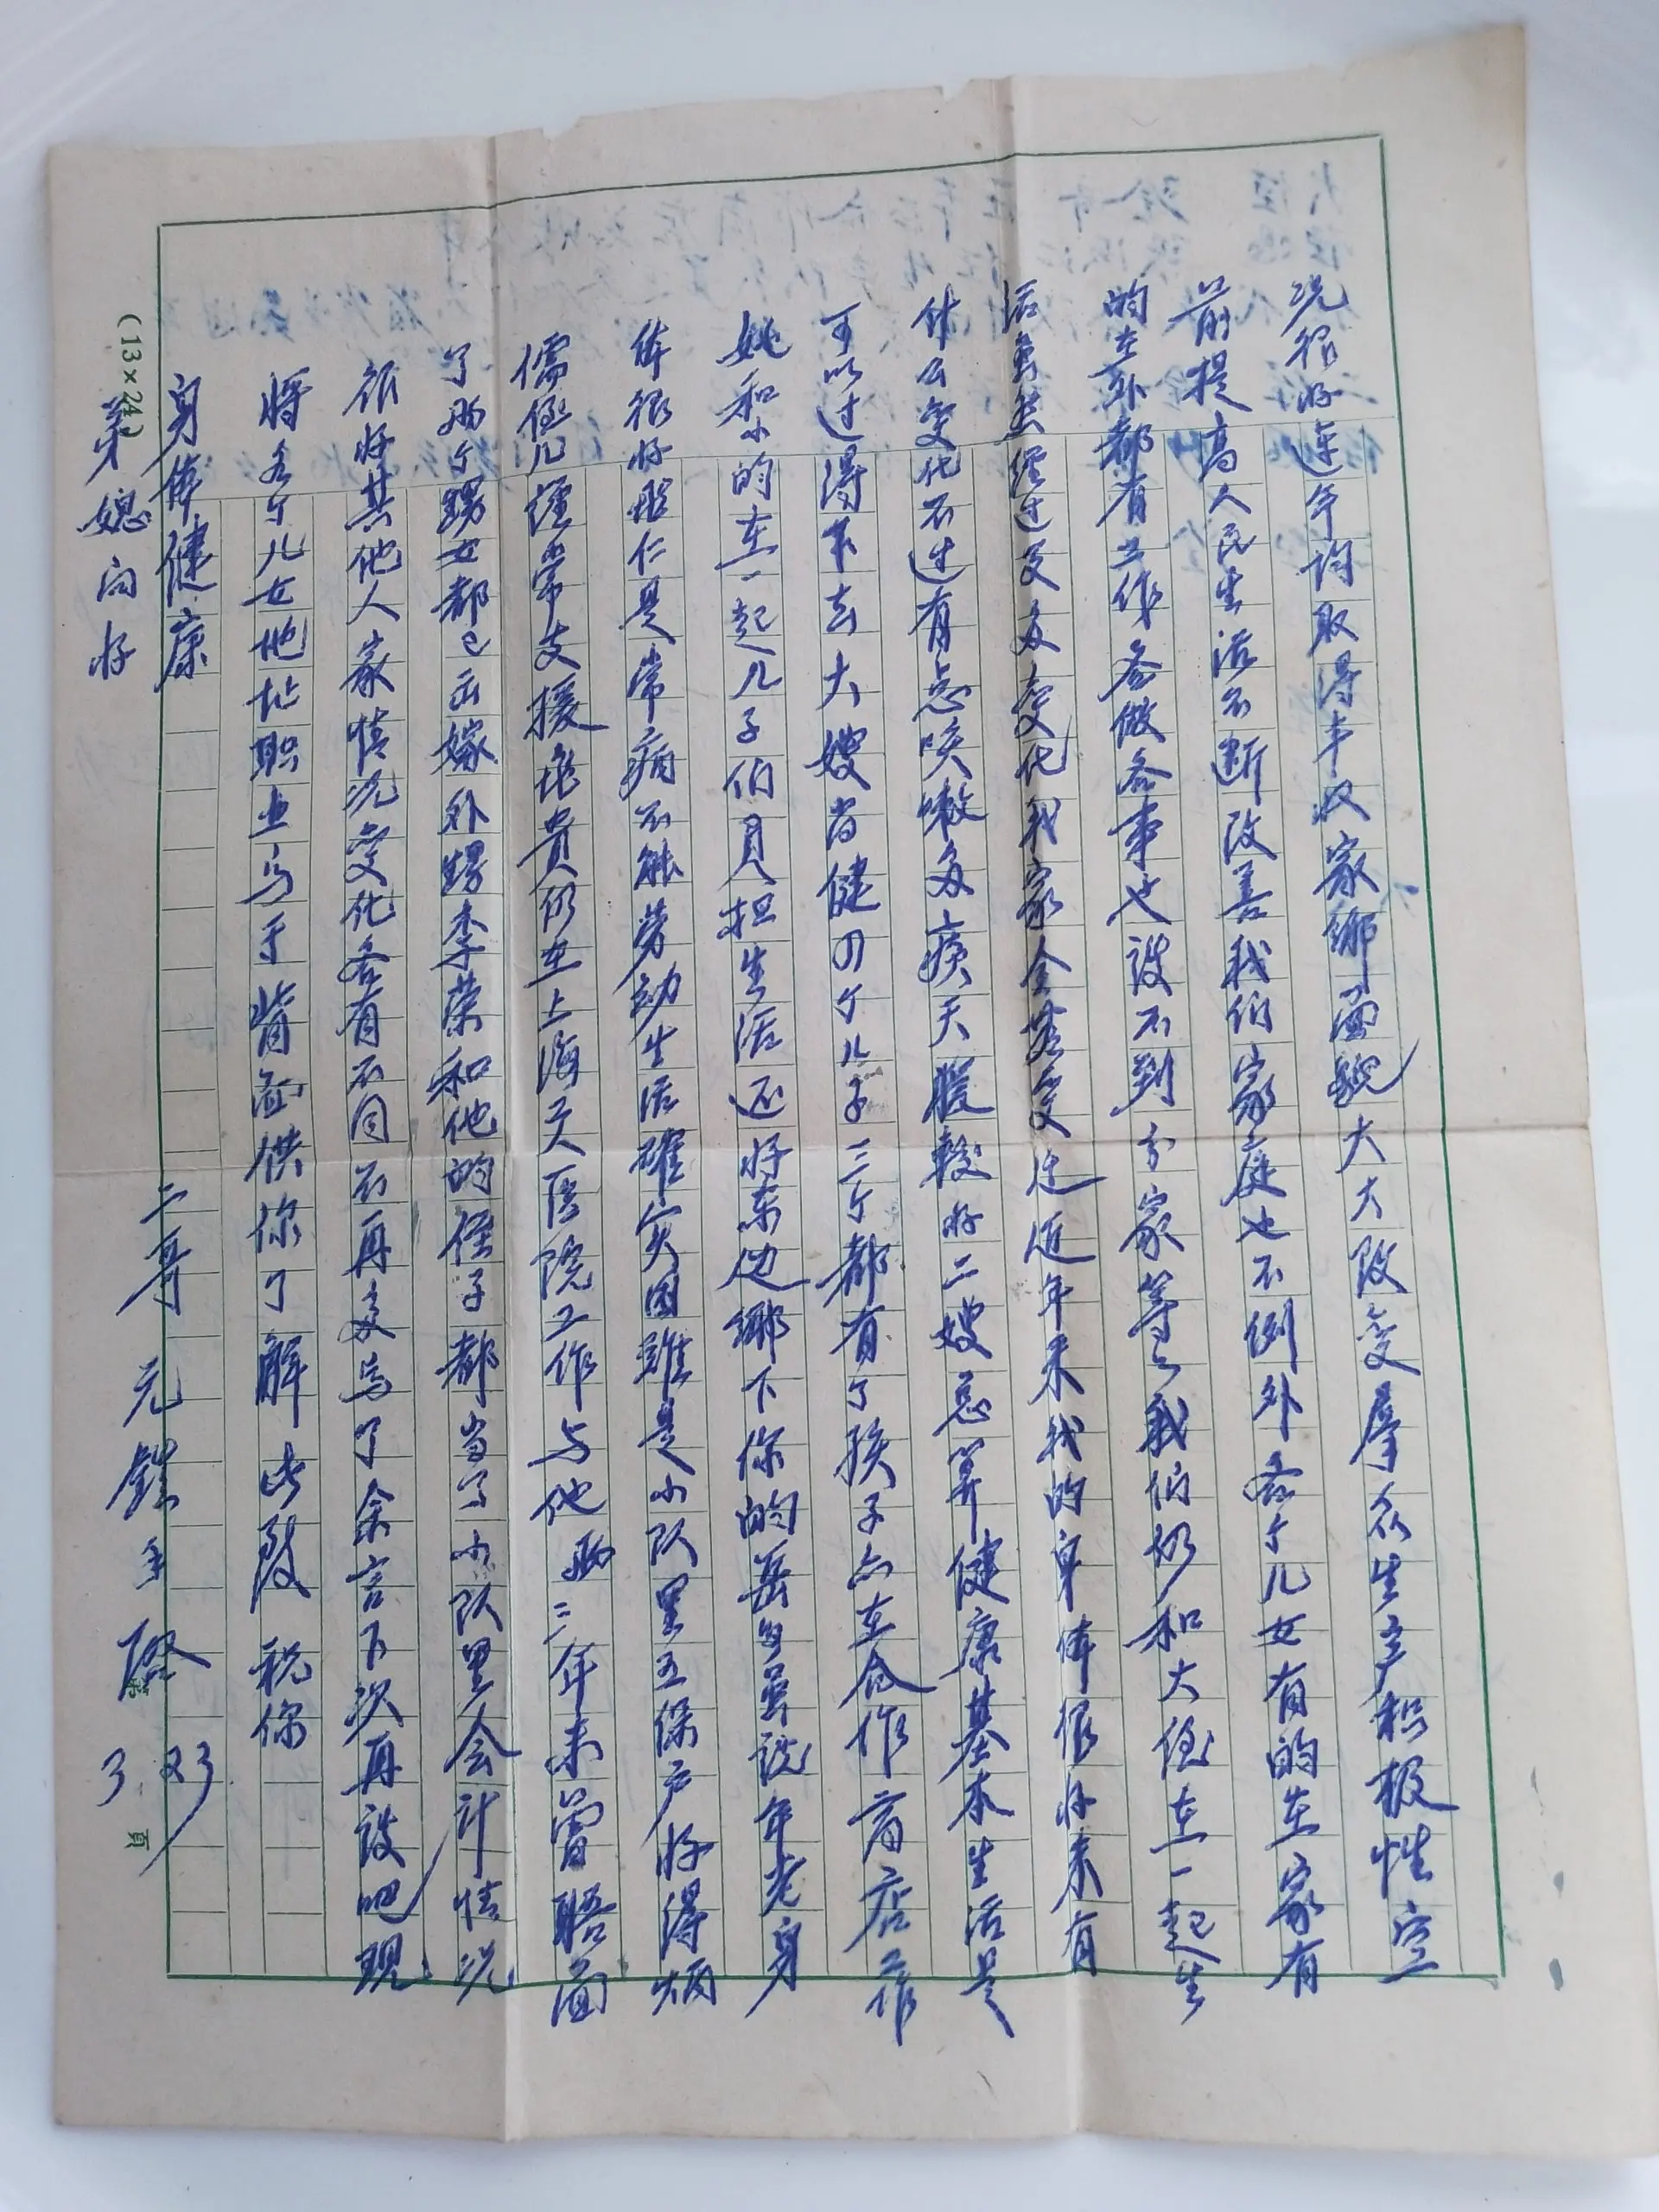 况很好连年均取得丰收家乡面貌大大改变群众生产积极性空
前提高人民生活不断改善我们家庭也不例外各个儿女有的在家有
的在外都有工作各做各事也谈不到分家等等我们仍和大侄在一起生
活虽然经过多变化我家全无变迁近年来我的身体很好未有
什么变化不过有点咳嗽多痰天暖较好二嫂总算健康基本生活是
可以过得下去大嫂尚健四个儿子三个都有了孩子六在合作商店工作
她和小的在一起儿子们负担生活还好东边乡下你的岳母虽说年老身
体很好彤仁是常病不能劳动生活确实困难是小队里五保户好得炳
儒侄儿经常支援培贵仍在上海天医院工作与他两三年未曾晤面
了两个甥女都已出嫁外甥李荣和他的侄子都当了小队里会计情况
很好其他人家情况变化各有不同不再多写了余言下次再谈吧现
将各个儿女地址职业写于背面供你了解 此致 祝你
身体健康
弟媳问好
二哥 元 手启 3.23
(13×24)
第 3 页